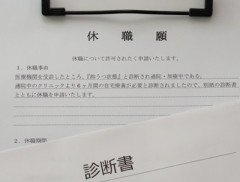 休 職 願
休職について許可されたく申請いたします。
1．休職事由
医療機関を受診したところ、『抑うつ状態』と診断され通院・治療中である。
通院中のクリニックより6ヶ月間の自宅療養が必要と診断されましたので、別紙の診断書
とともに休職を申請いたします。
2．休職期間
診断書